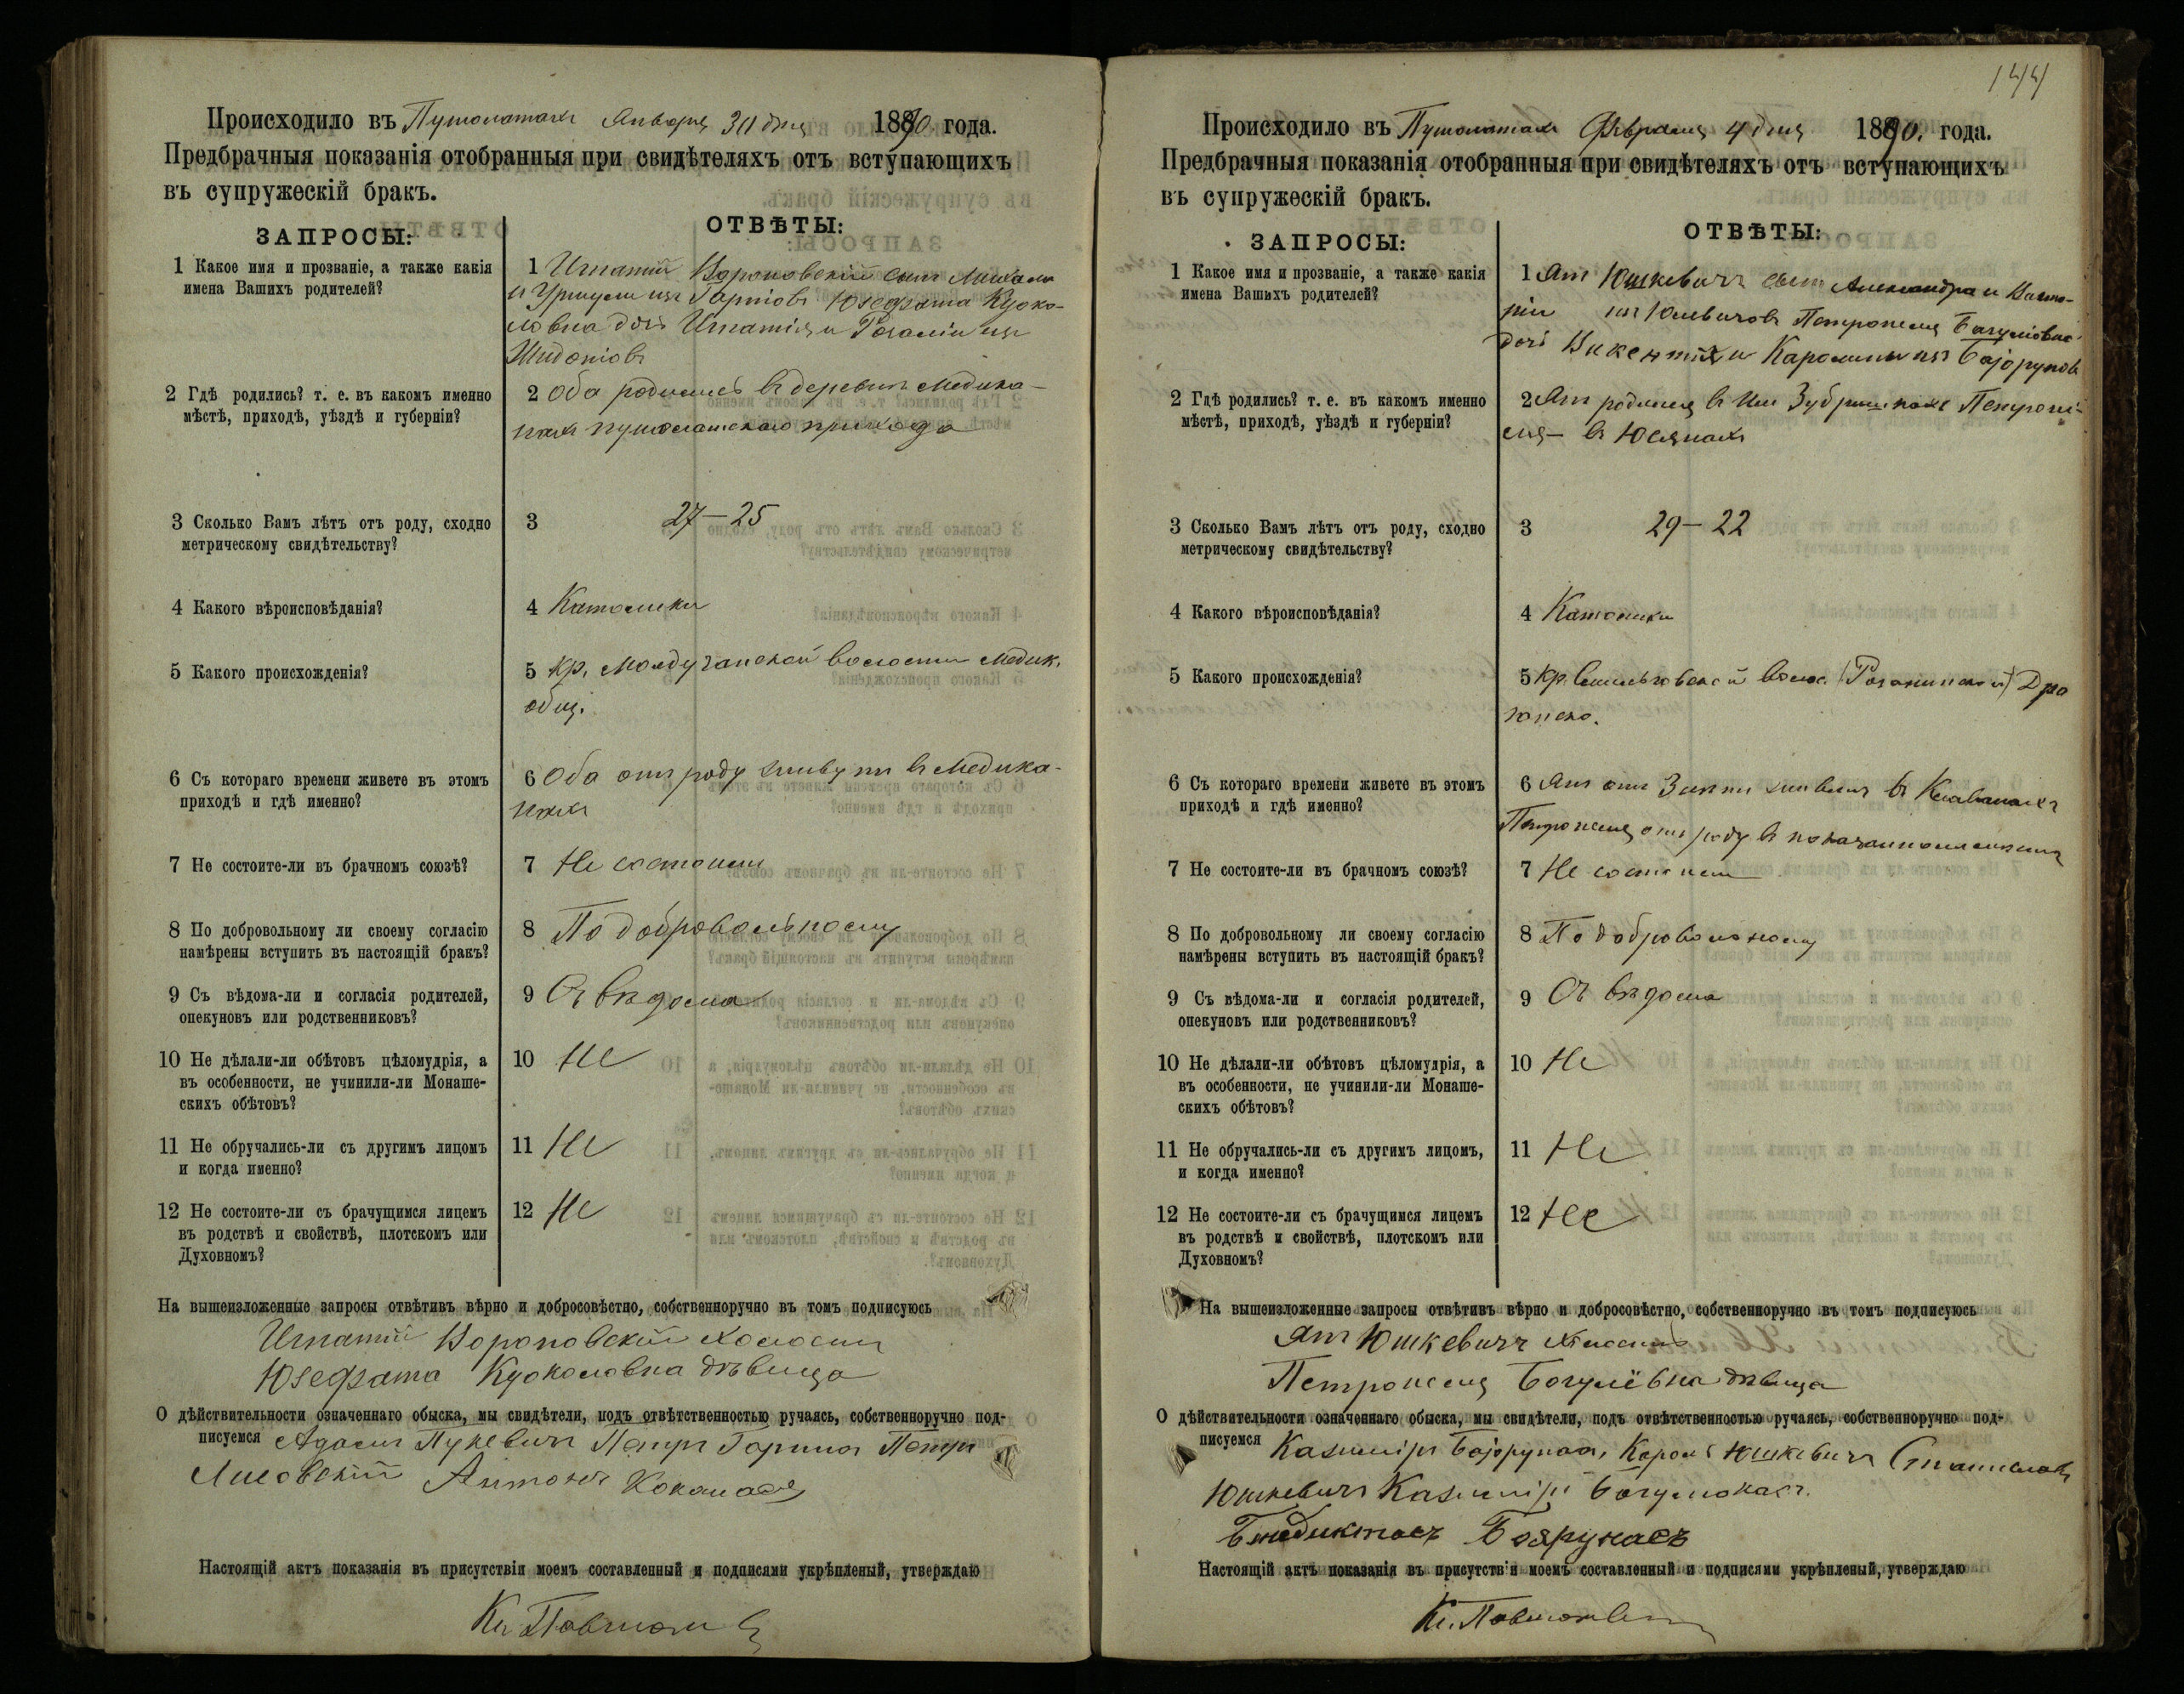 Происходило въ Пушолатахъ Января 30 дня 1890 года.
Предбрачныя показанія отобранныя при свидѣтеляхъ отъ вступающихъ
въ супружескій бракъ.
ЗАПРОСЫ:
ОТВѢТЫ:
1 Какое имя и прозваніе, а также какія
имена Вашихъ родителей?
1 Игнатій Вороновскій сынъ
и Уршули изъ Юзефата Куоко-
ловна дочь Игнатія и Розаліи изъ
2 Гдѣ родились? т. е. въ какомъ именно
мѣстѣ, приходѣ, уѣздѣ и губерніи?
2 Оба родились въ деревни Медика-
нахъ пушолатскаго прихода
3 Сколько Вамъ лѣтъ отъ роду, сходно
метрическому свидѣтельству?
3 27-25
4 Какого вѣроисповѣданія?
4 Католики
5 Какого происхожденія?
5 Кр. волости Медик.
общ.
6 Съ котораго времени живете въ этомъ
приходѣ и гдѣ именно?
6 Оба отъ роду живутъ въ Медика-
нахъ
7 Не состоите-ли въ брачномъ союзѣ?
7 Не состоимъ
8 По добровольному ли своему согласію
намѣрены вступить въ настоящій бракъ?
8 По добровольному
9 Съ вѣдома-ли и согласія родителей,
опекуновъ или родственниковъ?
9 Съ вѣдома
10 Не дѣлали-ли обѣтовъ цѣломудрія, а
въ особенности, не учинили-ли Монаше-
скихъ обѣтовъ?
10 Не
11 Не обручались-ли съ другимъ лицомъ
и когда именно?
11 Не
12 Не состоите-ли съ брачущимся лицемъ
въ родствѣ и свойствѣ, плотскомъ или
Духовномъ?
12 Не
На вышеизложенные запросы отвѣтивъ вѣрно и добросовѣстно, собственноручно въ томъ подписуюсь
Игнатій Вороновскій холостъ
Юзефата Куоколовна дѣвица
О дѣйствительности означеннаго обыска, мы свидѣтели, подъ отвѣтственностью ручаясь, собственноручно под-
писуемся Адамъ Петръ Петръ
Лисовскій Антонъ
Настоящій актъ показанія въ присутствіи моемъ составленный и подписями укрѣпленый, утверждаю
Кс.
144
Происходило въ Пушолатахъ Февраля 4 дня 1890. года.
Предбрачныя показанія отобранныя при свидѣтеляхъ отъ вступающихъ
въ супружескій бракъ.
ЗАПРОСЫ:
ОТВѢТЫ:
1 Какое имя и прозваніе, а также какія
имена Вашихъ родителей?
1 Янъ Юшкевичъ сынъ Александра и Викто-
ріи изъ Петронеля
дочь Викентія и Каролины изъ
2 Гдѣ родились? т. е. въ какомъ именно
мѣстѣ, приходѣ, уѣздѣ и губерніи?
2 Янъ родился въ Петроне-
ля - въ Юсянахъ
3 Сколько Вамъ лѣтъ отъ роду, сходно
метрическому свидѣтельству?
3 29-22
4 Какого вѣроисповѣданія?
4 Католики
5 Какого происхожденія?
5 Кр.
6 Съ котораго времени живете въ этомъ
приходѣ и гдѣ именно?
6 Янъ отъ въ
Петронеля отъ роду въ
7 Не состоите-ли въ брачномъ союзѣ?
7 Не состоимъ
8 По добровольному ли своему согласію
намѣрены вступить въ настоящій бракъ?
8 По добровольному
9 Съ вѣдома-ли и согласія родителей,
опекуновъ или родственниковъ?
9 Съ вѣдома
10 Не дѣлали-ли обѣтовъ цѣломудрія, а
въ особенности, не учинили-ли Монаше-
скихъ обѣтовъ?
10 Не
11 Не обручались-ли съ другимъ лицомъ,
и когда именно?
11 Не
12 Не состоите-ли съ брачущимся лицемъ
въ родствѣ и свойствѣ, плотскомъ или
Духовномъ?
12 Не
На вышеизложенные запросы отвѣтивъ вѣрно и добросовѣстно, собственноручно въ томъ подписуюсь
Янъ Юшкевичъ холостъ
Петронеля дѣвица
О дѣйствительности означеннаго обыска, мы свидѣтели, подъ отвѣтственностью ручаясь, собственноручно под-
писуемся Казиміръ Кароль Юшкевичъ Станиславъ
Юшкевичъ Казиміръ
Бенедиктасъ Боярунасъ
Настоящій актъ показанія въ присутствіи моемъ составленный и подписями укрѣпленый, утверждаю
Кс.